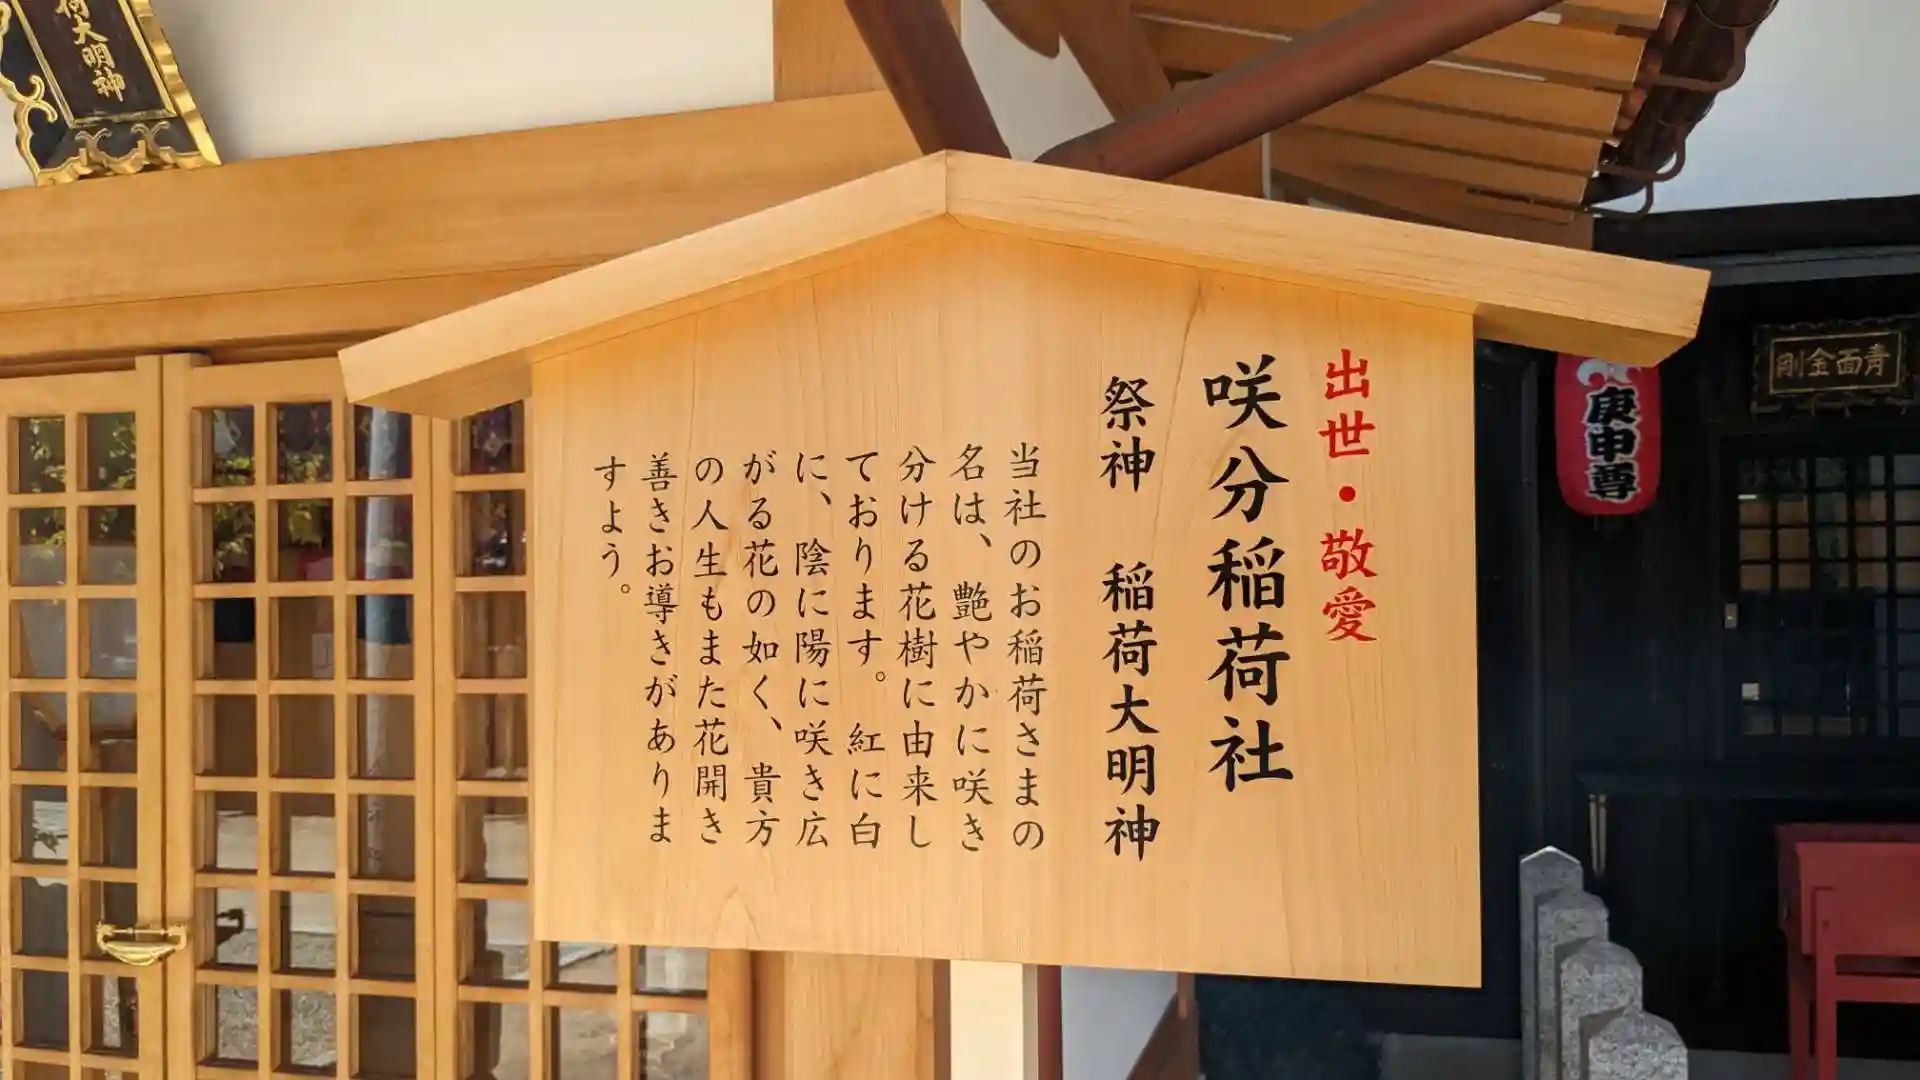 出世・敬愛
咲分稲荷社
祭神 稲荷大明神
当社のお稲荷さまの
名は、艶やかに咲き
分ける花樹に由来し
ております。紅に白
に、陰に陽に咲き広
がる花の如く、貴方
の人生もまた花開き
善きお導きがありま
すよう。
荷大明神
庚申尊
青面金剛